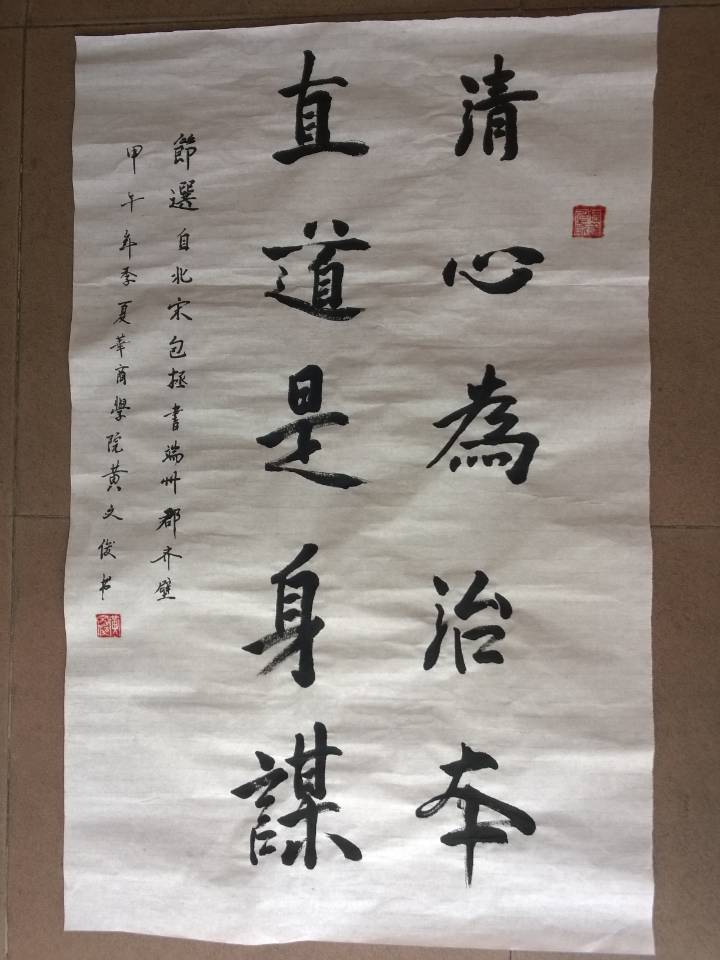 清心為治本
直道是身謀
節選自北宋包拯書端州郡齐壁
甲午年季夏華商學院黄文俊书